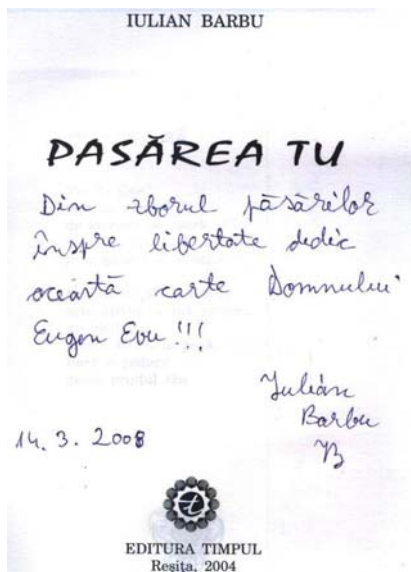 IULIAN BARBU
PASĂREA TU
Din zborul păsărilor
înspre libertate dedic
această carte Domnului
Eugen Evu !!!
Iulian
Barbu
14. 3. 2008
EDITURA TIMPUL
Reșița, 2004